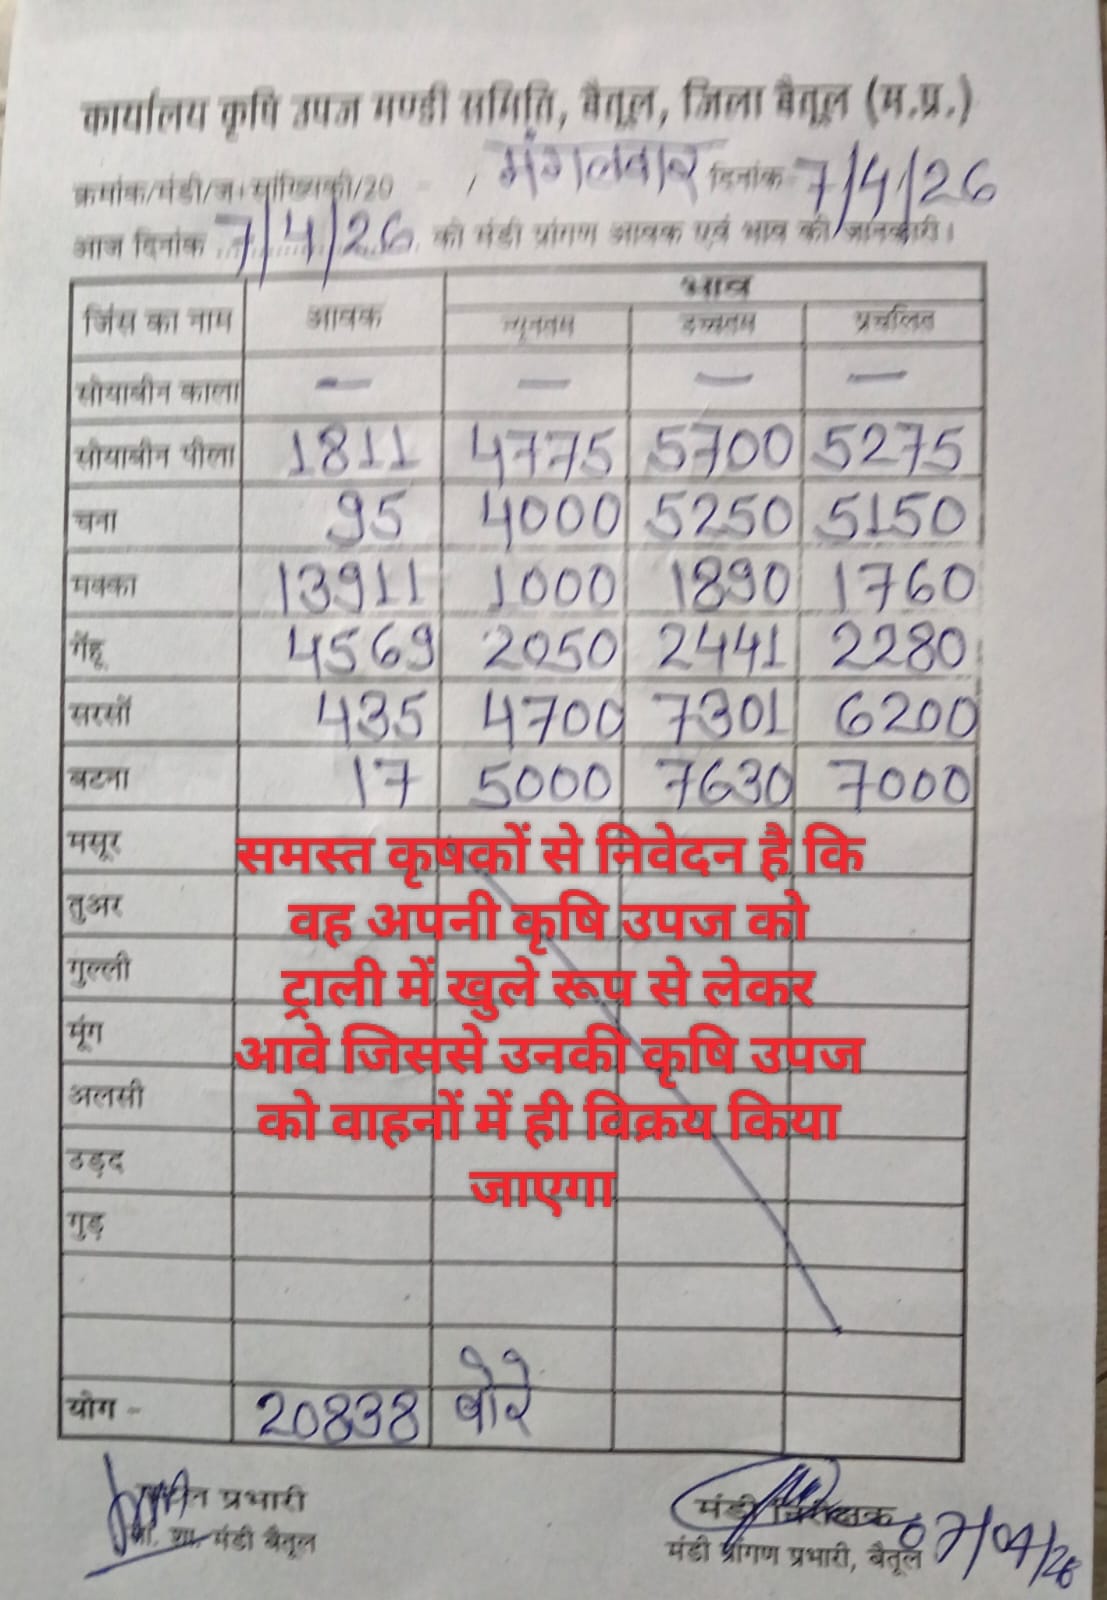 कार्यालय कृषि उपज मण्डी समिति, बैतूल, जिला बैतूल (म.प्र.)
क्रमांक/मंडी/ज. सांख्यिकी/20 - / मंगलवार दिनांक 7/4/26
आज दिनांक 7/4/26 को मंडी प्रांगण आवक एवं भाव की जानकारी।
जिंस का नाम आवक भाव
न्यूनतम उच्चतम प्रचलित
सोयाबीन काला — — — —
सोयाबीन पीला 1811 4775 5700 5275
चना 95 4000 5250 5150
मक्का 13911 1000 1890 1760
गेंहू 4569 2050 2441 2280
सरसों 435 4700 7301 6200
बटना 17 5000 7630 7000
मसूर
तुअर
गुल्ली
मूंग
अलसी
उड़द
गुड़
समस्त कृषकों से निवेदन है कि
वह अपनी कृषि उपज को
ट्राली में खुले रूप से लेकर
आवे जिससे उनकी कृषि उपज
को वाहनों में ही विक्रय किया
जाएगा
योग - 20838 बोरे
प्रभारी
मंडी बैतूल
मंडी निरीक्षक
मंडी प्रांगण प्रभारी, बैतूल 07/04/26